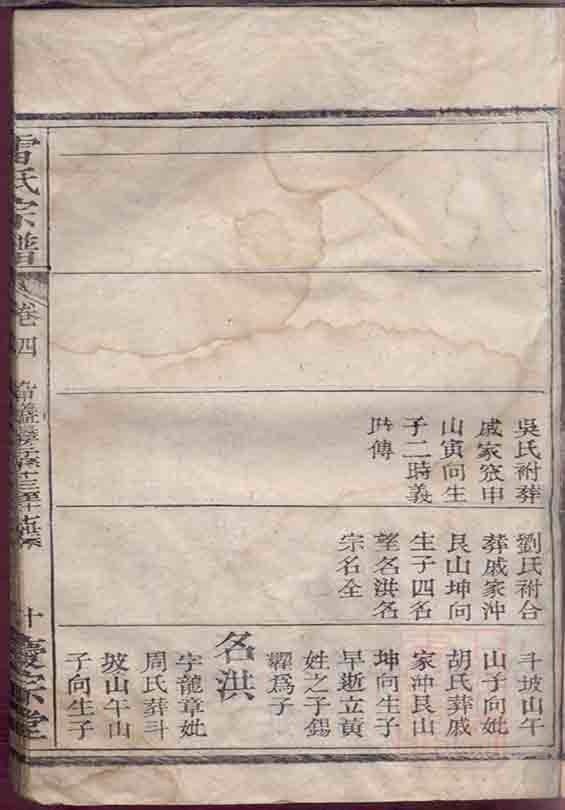 吳氏祔葬
戚家窊申
山寅向生
子二時義
時傳
劉氏祔合
葬戚家沖
艮山坤向
生子四名
望名洪名
宗名全
斗坡山午
山子向妣
胡氏葬戚
家沖艮山
坤向生子
早逝立黃
姓之子錫
耀爲子
名洪
字龍章妣
周氏葬斗
坡山午山
子向生子
雷氏宗譜
卷四
十
宗堂